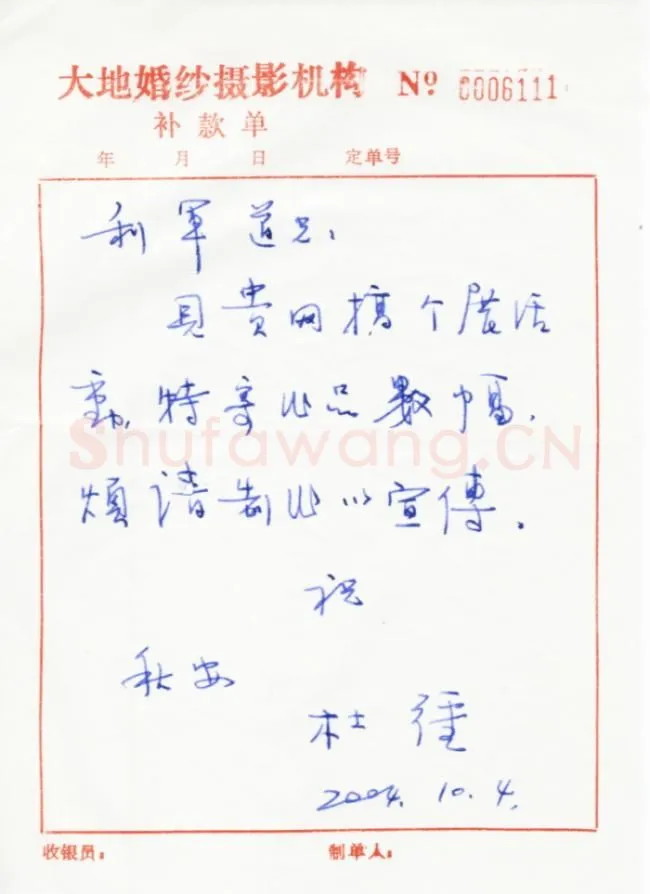 大地婚纱摄影机构 Nº 0006111
补款单
年 月 日 定单号
利軍道兄：
見貴网搞个展活
動，特寄作品数幅，
煩請制作以宣傳。
祝
秋安
杜
2004.10.4.
Shufawang.CN
收银员： 制单人：